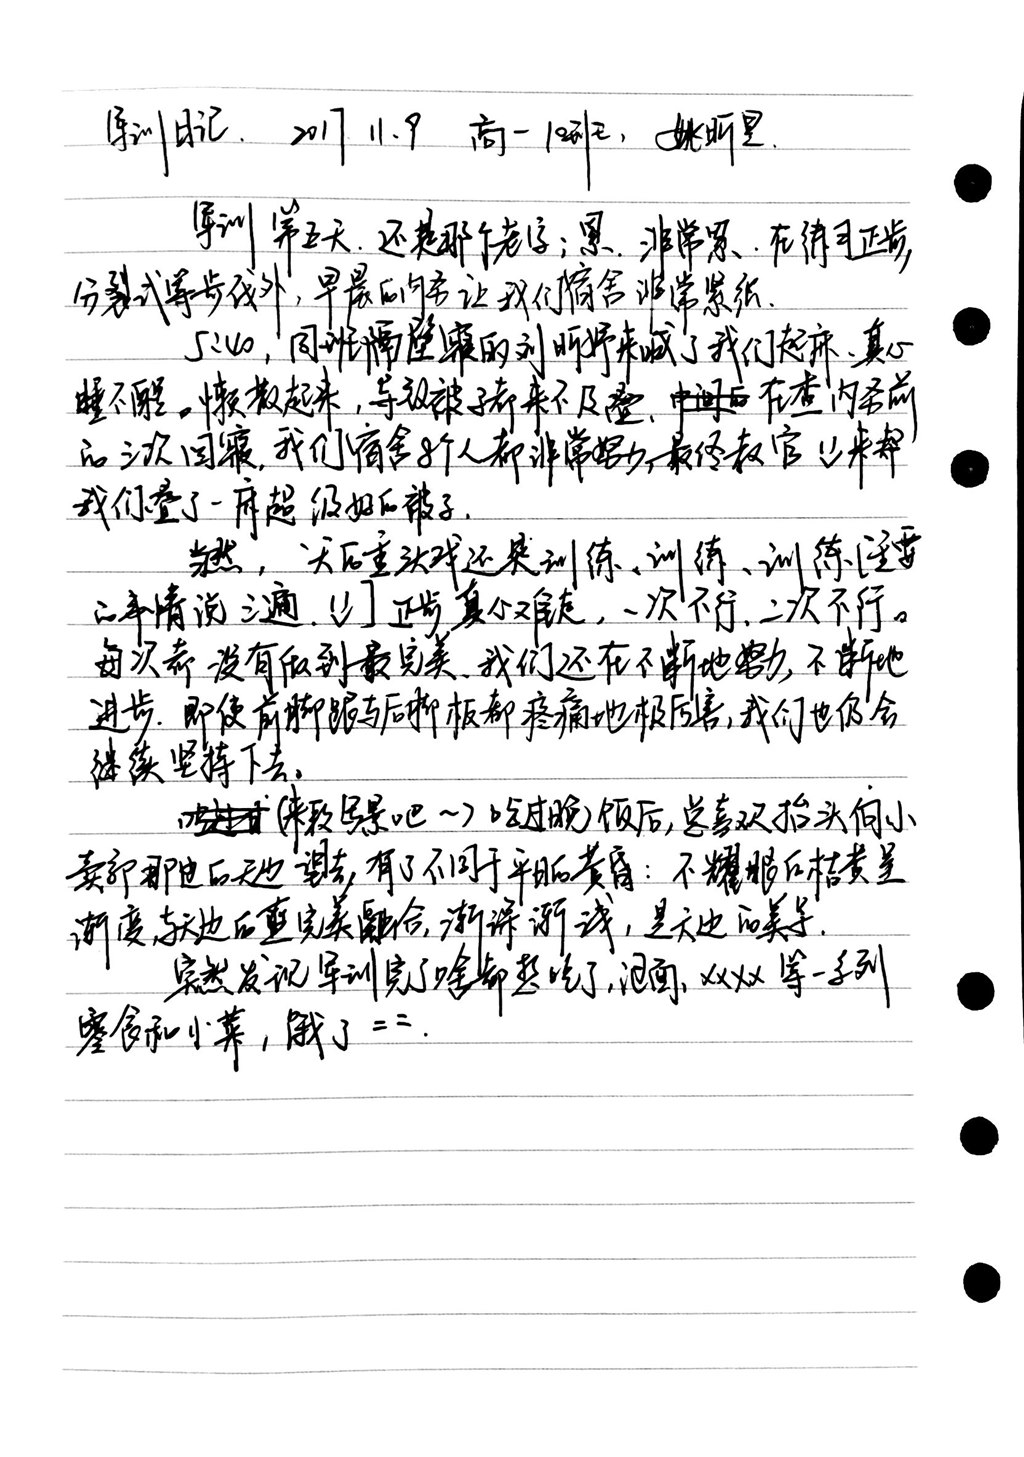 军训日记. 2017 11.9 高一 姚昕星.
军训第五天.还是那个老字;累.非常累.在练习正步,
分裂式等步伐外,早晨的内务让我们宿舍非常紧张.
5:40,同班隔壁寝的刘昕妤来喊了我们起床、真心
睡不醒。懒散起来,导致被子都来不及叠.在查内务前
的三次回寝,我们宿舍8个人都非常努力,最终教官来帮
我们叠了一床超级好的被子.
当然,一天的重头戏还是训练、训练、训练[重要
的事情说三遍.]正步真心难走,一次不行、二次不行。
每次都没有做到最完美、我们还在不断地努力,不断地
进步.即使前脚跟与后脚板都疼痛地极厉害,我们也仍会
继续坚持下去。
(来段写景吧~)吃过晚饭后,总喜欢抬头向小
卖部那边的天边望去,有了不同于平日的黄昏:不耀眼的桔黄呈
渐度,与天边的蓝完美融合,渐深渐浅,是天边的美景.
突然发记军训完了啥都想吃了,泡面、xxxx等一系列
零食和小菜,饿了==.